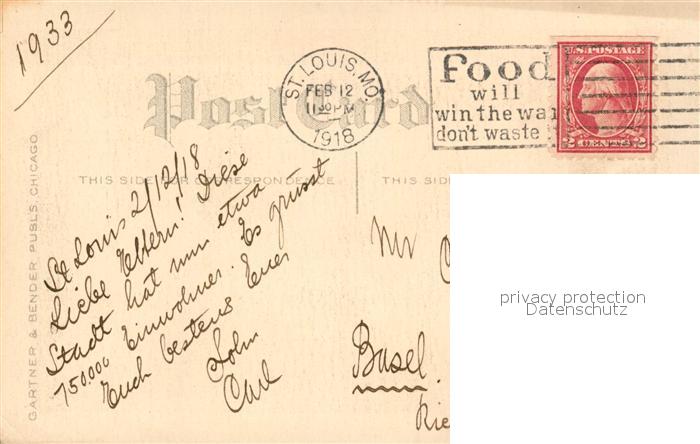 1933
Post Card
ST. LOUIS, MO.
FEB 12
11 30 PM
1918
Food
will
win the war
don't waste
U.S. POSTAGE
2 CENTS 2
THIS SIDE FOR CORRESPONDENCE
THIS S
GARTNER & BENDER PUBLS, CHICAGO
St Louis 2/12/18
Liebe Eltern! Diese
Stadt hat nun etwa
750.000 Einwohner. Es grüsst
Euch bestens Euer
Sohn
Carl
Mr
Basel
privacy protection
Datenschutz